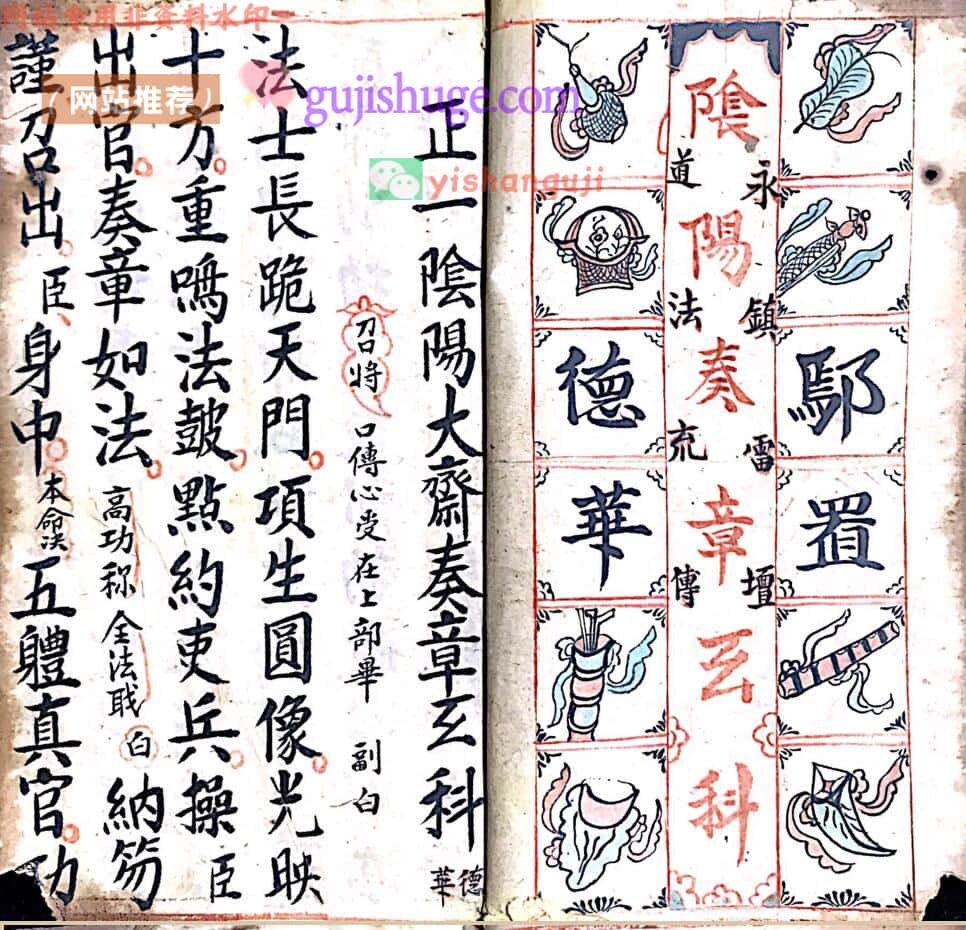 鄢置
永鎮雷壇
陰陽奏章玄科
道法充傳
德華
正一陰陽大齋奏章玄科 德華
召將 口傳心受在上部畢 副白
法士長跪天門項生圓像光映
十方重鳴法皷點約吏兵操臣
出官奏章如法 高功称全法戝 白 納笏
謹召出臣身中本命决五體真官功
(网站推荐)
gujishuge.com
yishanguji